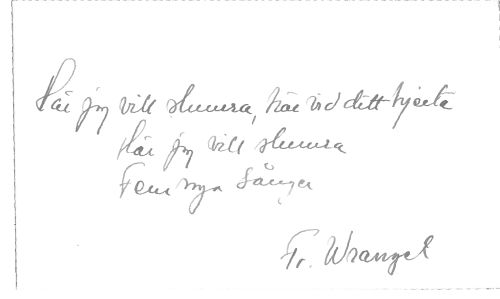 Här jag vill slumra, här vid ditt hjerta
Här jag vill slumra
Fem nya Sånger
Fr. Wrangel